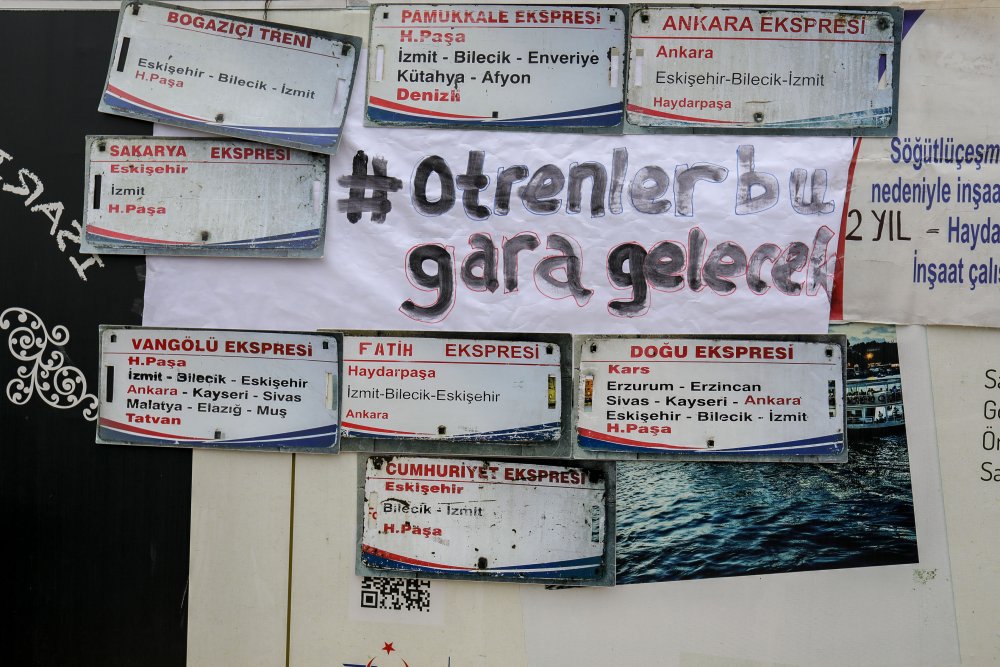 BOĞAZİÇİ TRENİ
Eskişehir - Bilecik - İzmit
H.Paşa
PAMUKKALE EKSPRESİ
H.Paşa
İzmit - Bilecik - Enveriye
Kütahya - Afyon
Denizli
ANKARA EKSPRESİ
Ankara
Eskişehir-Bilecik-İzmit
Haydarpaşa
SAKARYA EKSPRESİ
Eskişehir
İzmit
H.Paşa
#Otrenler bu
gara gelecek
Söğütlüçeşm
nedeniyle inşaa
2 YIL - Hayda
İnşaat çalış
VANGÖLÜ EKSPRESİ
H.Paşa
İzmit - Bilecik - Eskişehir
Ankara - Kayseri - Sivas
Malatya - Elazığ - Muş
Tatvan
FATİH EKSPRESİ
Haydarpaşa
İzmit-Bilecik-Eskişehir
Ankara
DOĞU EKSPRESİ
Kars
Erzurum - Erzincan
Sivas - Kayseri - Ankara
Eskişehir - Bilecik - İzmit
H.Paşa
CUMHURİYET EKSPRESİ
Eskişehir
Bilecik - İzmit
H.Paşa